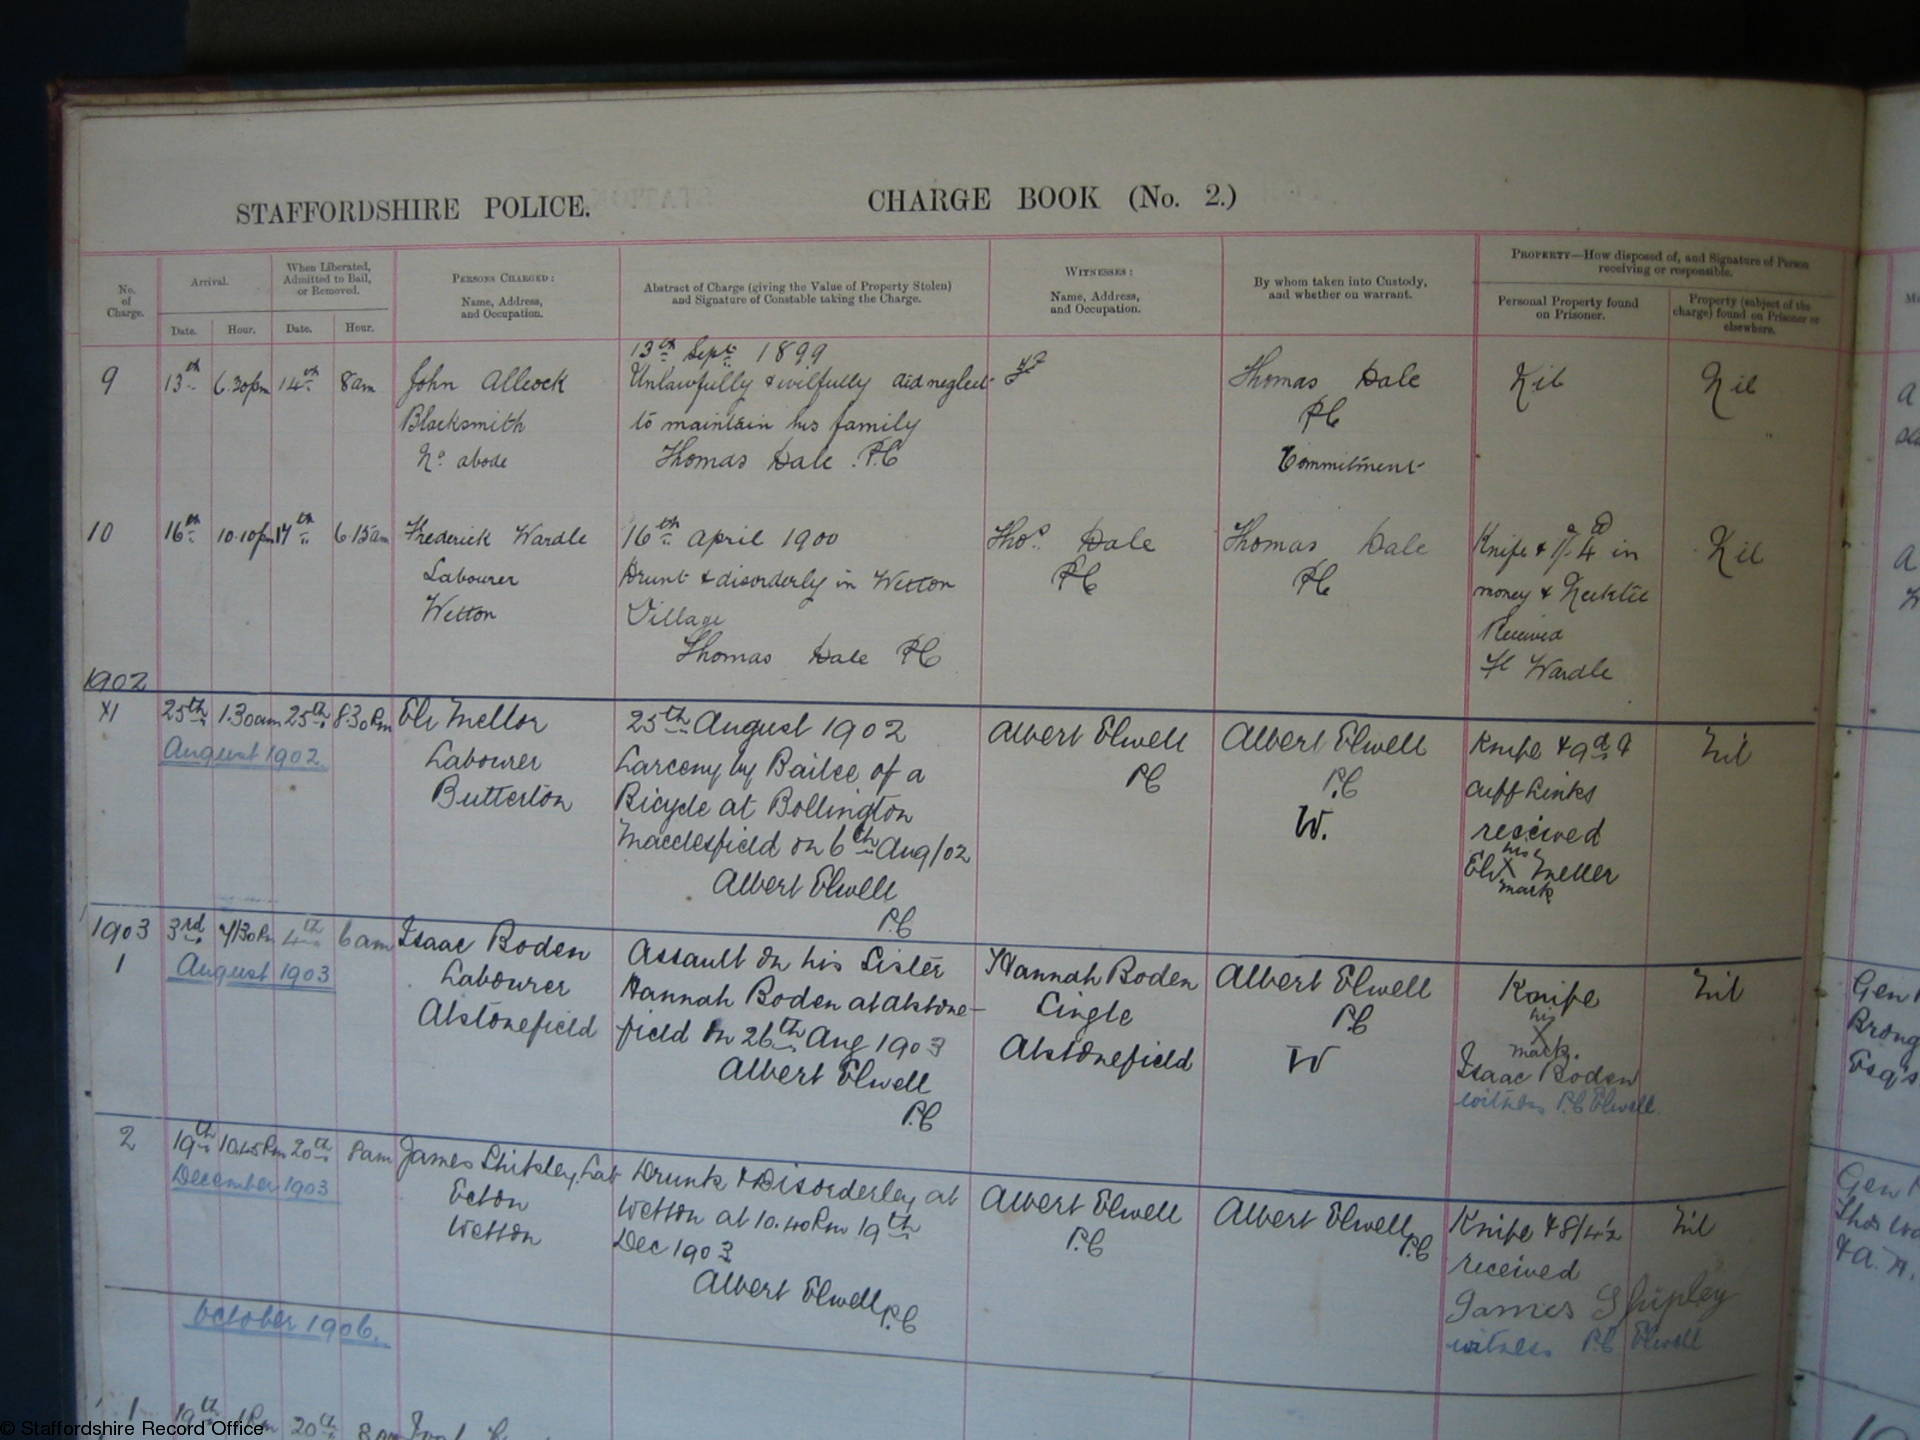 STAFFORDSHIRE POLICE. CHARGE BOOK (No. 2.)
No. of Charge.
Arrival.
When Liberated, Admitted to Bail, or Removed.
Date. Hour. Date. Hour.
PERSONS CHARGED:
Name, Address, and Occupation.
Abstract of Charge (giving the Value of Property Stolen)
and Signature of Constable taking the Charge.
WITNESSES:
Name, Address, and Occupation.
By whom taken into Custody,
and whether on warrant.
PROPERTY—How disposed of, and Signature of Person
receiving or responsible.
Personal Property found
on Prisoner.
Property (subject of the
charge) found on Prisoner or
elsewhere.
9 13th 6.30pm 14th 8am
John Allcock
Blacksmith
No abode
13th Sept 1899
Unlawfully & wilfully did neglect
to maintain his family
Thomas Dale P.C
Thomas Dale
PC
Commitment
Nil
Nil
10 16th 10.10pm 17th 6.15am
Frederick Wardle
Labourer
Wetton
16th April 1900
Drunk & disorderly in Wetton
Village
Thomas Dale PC
Thos. Dale
PC
Thomas Dale
PC
Knife & 1/4d in
money & Necktie
Received
Fk Wardle
Nil
1902
XI 25th 1.30am 25th 8.30Pm
August 1902
Eli Mellor
Labourer
Butterton
25th August 1902
Larceny by Bailee of a
Bicycle at Bollington
Macclesfield on 6th Aug/02
Albert Elwell
P.C
Albert Elwell
PC
Albert Elwell
P.C
W.
Knife & 9d &
cuff Links
received
his
Eli X Meller
mark
Nil
1903
1 3rd 7/30Pm 4th 6am
August 1903
Isaac Boden
Labourer
Alstonefield
Assault on his Sister
Hannah Boden at Alstone-
field on 26th Aug 1903
Albert Elwell
P.C
Hannah Boden
Single
Alstonefield
Albert Elwell
P.C
W
Knife
his
X
mark.
Isaac Boden
witness P.C Elwell.
Nil
2 19th 10.45Pm 20th 8am
December 1903
James Shipley, Lab
Ecton
Wetton
Drunk & Disorderley at
Wetton at 10.40Pm 19th
Dec 1903
Albert Elwell P.C
Albert Elwell
P.C
Albert Elwell
P.C
Knife & 8/4½
received
James Shipley
witness P.C Elwell
Nil
October 1906.
1 19th 1Pm 20th
Gen
Brong
Esq's
Gen
© Staffordshire Record Office